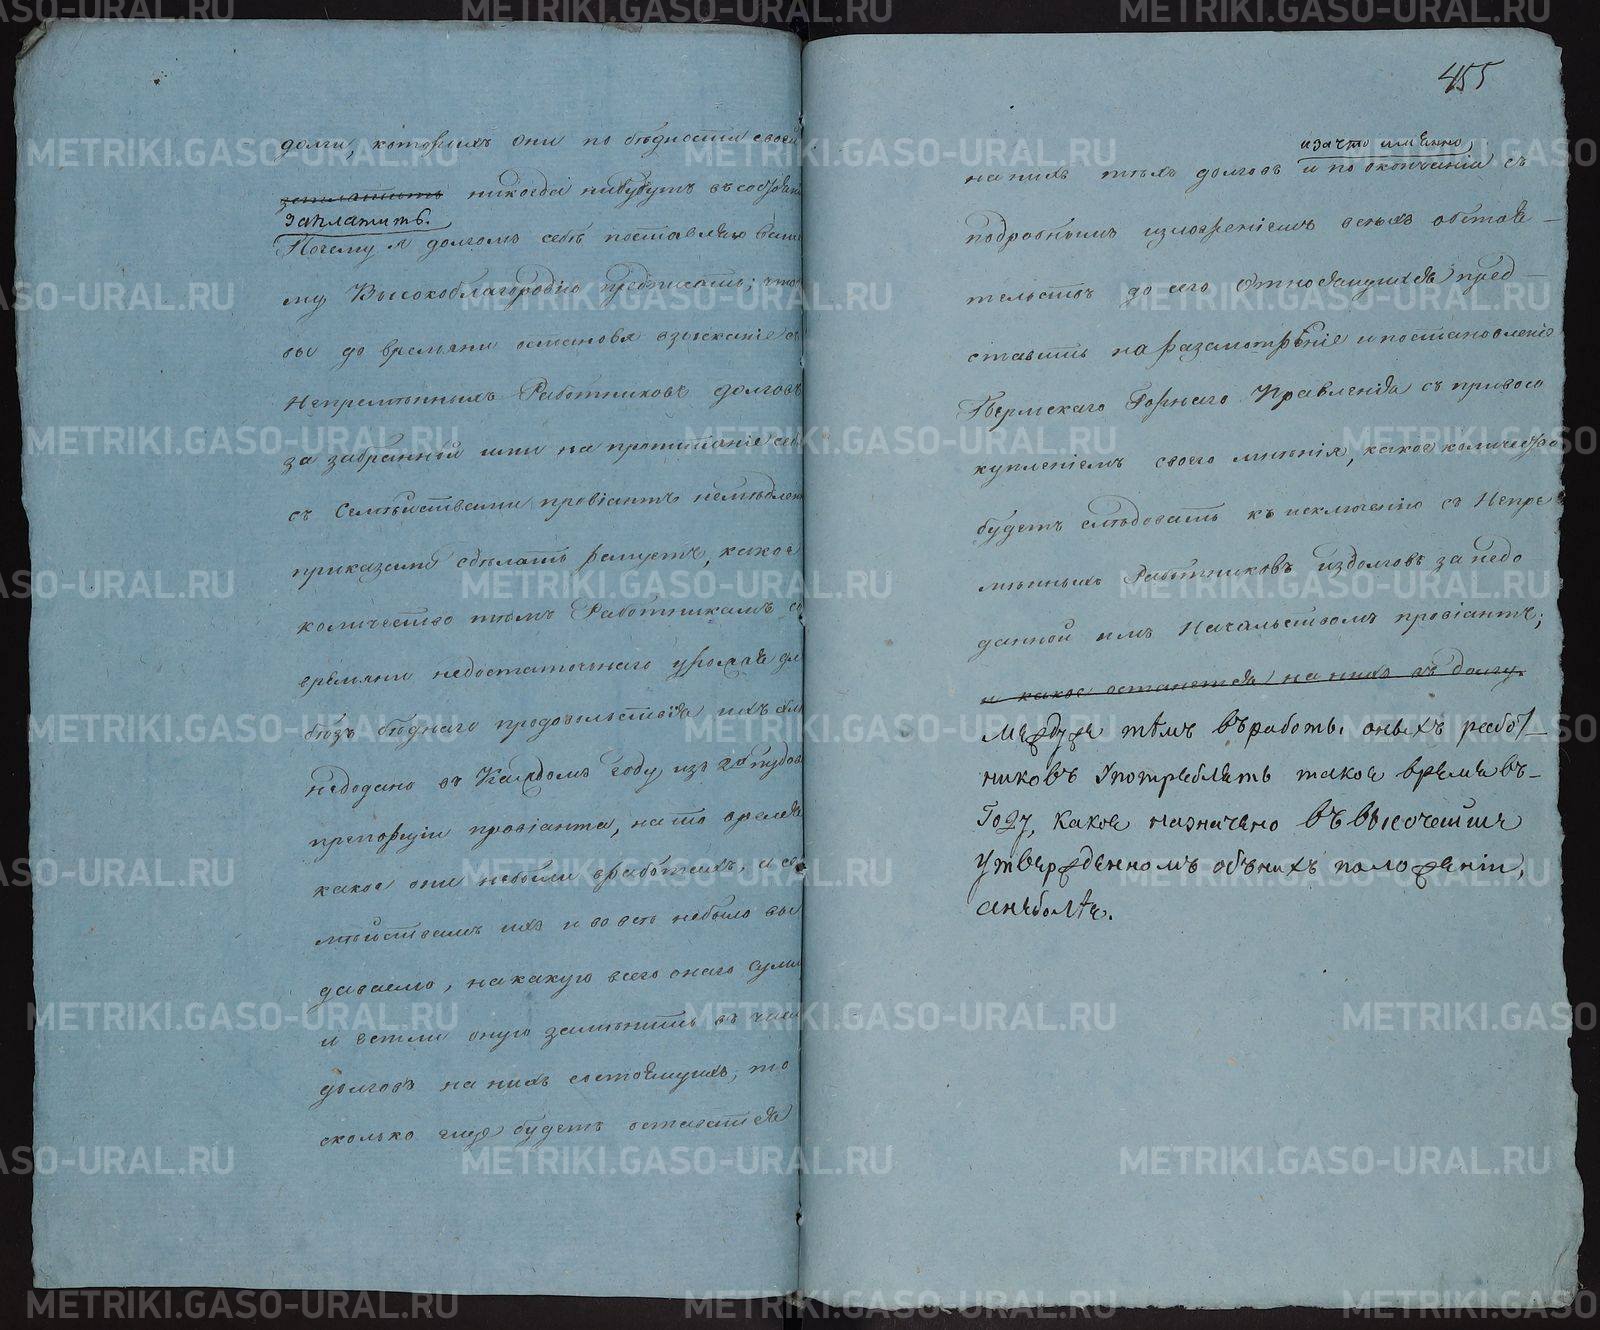 долги, которыхъ они по бѣдности своей
заплатить никогда небудутъ въ состоянiи
заплатить.
Почему я долгомъ себѣ поставляю ваше
му Высокоблагородiю предписать; что
бы до времяни остановя взысканiе съ
Непремѣнныхъ Работниковъ долговъ
за забранной ими на пропитанiе себя
съ Семѣйствами провiантъ немѣдленно
приказали сдѣлать рощетъ, какое
количество тѣмъ Работникамъ со
времяни недостаточнаго урожая для
безъ бѣднаго продовольствiя ихъ
недодано въ Каждомъ году, изъ 20 пудовой
препорцiи провiанта, на то время
какое они небыли вработахъ, и се
мѣйствамъ ихъ и вовсѣ небыло вы
даваемо, на какую всего онаго сумму
и естли оную замѣнить въ число
долговъ на нихъ состоящихъ, то
сколько еще будетъ оставатся
455
изачто имянно,
на нихъ тѣхъ долговъ и по окончанiи съ
подробнымъ изложенiемъ всѣхъ обстоя
тельствъ до сего относящихся пред
ставить на разсмотрѣнiе и постановленiе
Пермскаго Горнаго Правленiя съ присово
куплѣнiемъ своего мнѣнiя, какое количество
будетъ слѣдовать къ исключенiю съ Непре
мѣнныхъ Работниковъ издолговъ за недо
данной имъ Начальствомъ провiантъ;
и какое останется на нихъ въ долгу.
между же тѣмъ въ работы оныхъ работ
никовъ употреблять такое время въ
Году, какое назначено въ высочайше
утвержденномъ объ нихъ положенiи,
анеболѣе.
METRIKI.GASO-URAL.RU